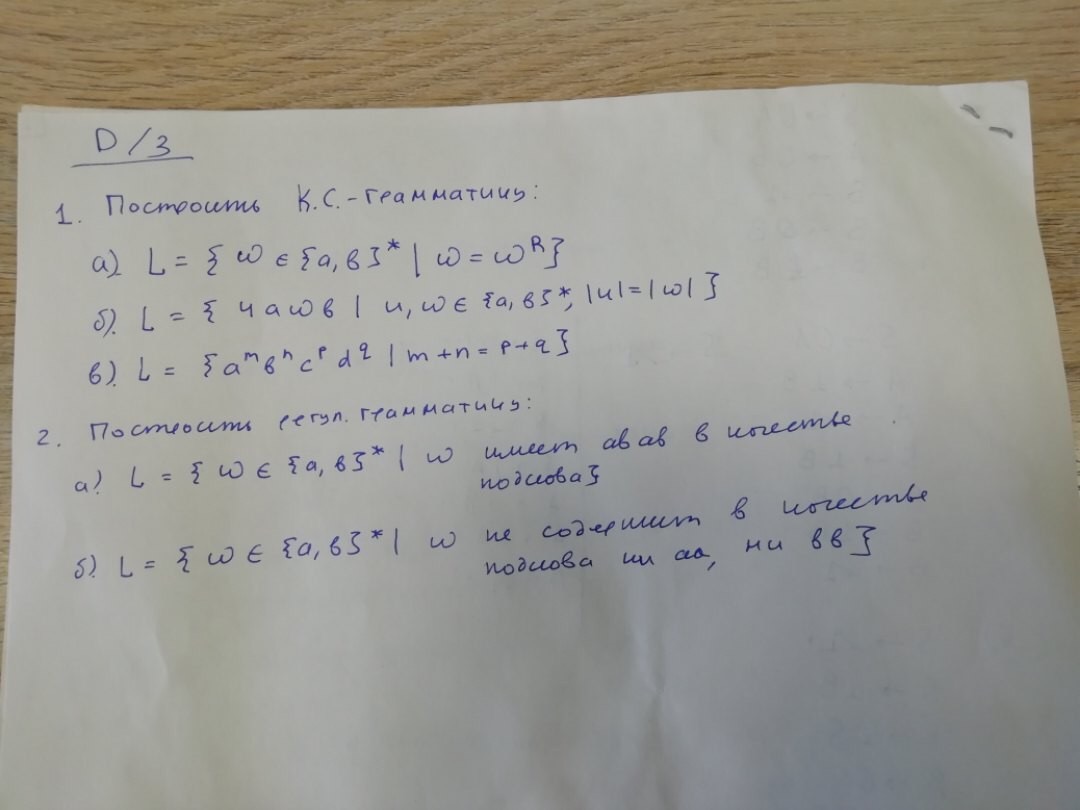 D/З
1. Построить К.С.-грамматику:
а). L = { w ∈ {a, b}* | w = w^R }
б). L = { u a w b | u, w ∈ {a, b}*, |u| = |w| }
в). L = { a^m b^n c^p d^q | m + n = p + q }
2. Построить регул. грамматику:
а). L = { w ∈ {a, b}* | w имеет abab в качестве
подслова }
б). L = { w ∈ {a, b}* | w не содержит в качестве
подслова ни aa, ни bb }